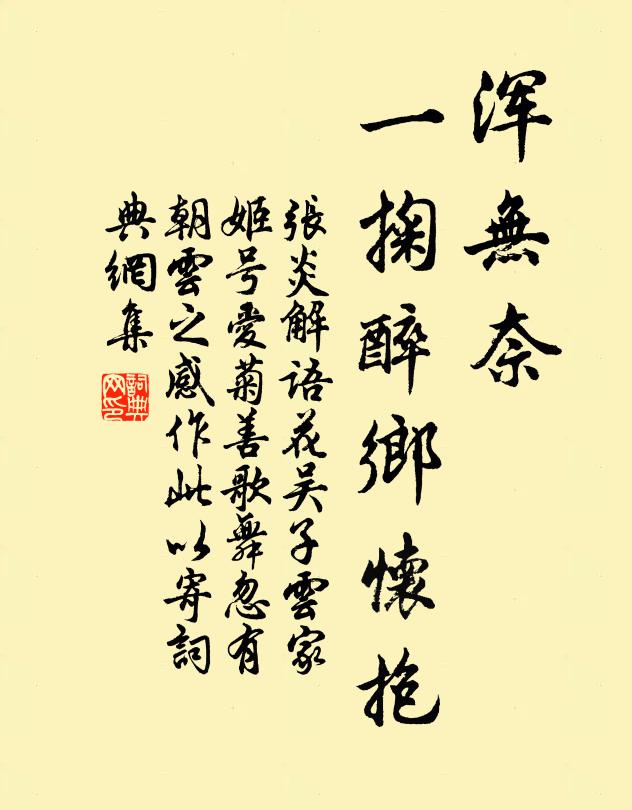 浑無奈
一掬醉鄉懷抱
張炎解語花吴子雲家
姬号愛菊善歌舞忽有
朝雲之感作此以寄詞
典網集
詞典網印